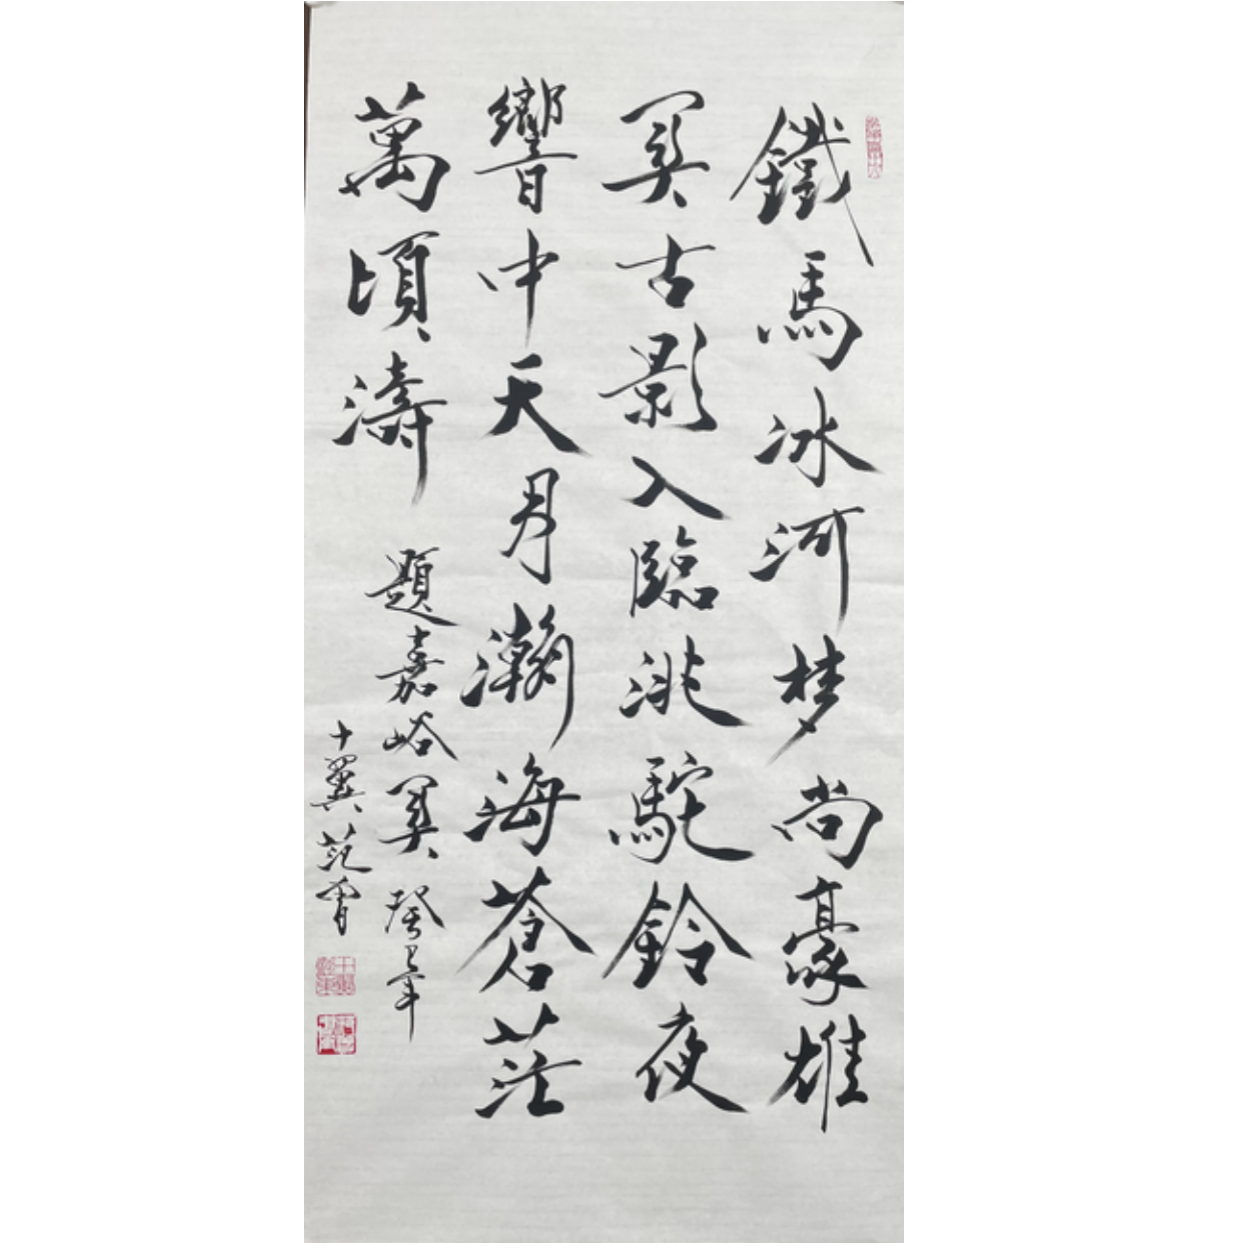 鐵馬冰河梦尚豪雄
關古影入臨洮駝鈴夜
響中天月瀚海蒼茫
萬頃濤
題嘉峪關 癸巳年
十翼范曾